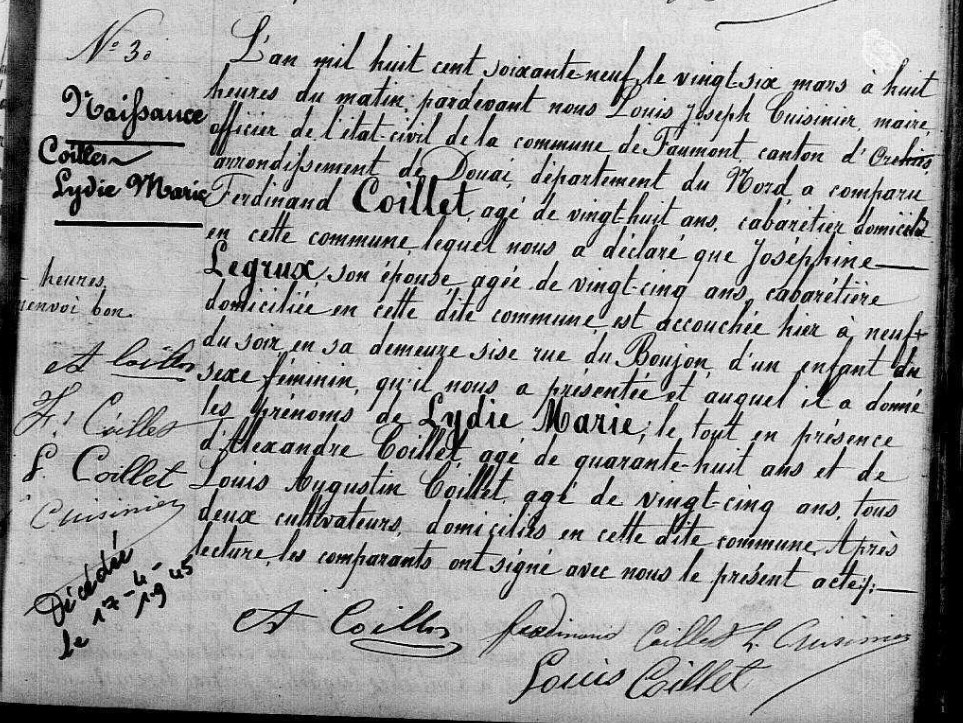 N° 30
Naissance
Coillet
Lydie Marie
L'an mil huit cent soixante-neuf, le vingt-six mars à huit
heures du matin, pardevant nous Louis Joseph Cuisinier, maire,
officier de l'état-civil de la commune de Faumont, canton d'Orchies,
arrondissement de Douai, département du Nord, a comparu
Ferdinand Coillet, agé de vingt-huit ans, cabarétier domicilié
en cette commune, lequel nous a déclaré que Joséphine
Legrux, son épouse, agée de vingt-cinq ans, cabarétière
domiciliée en cette dite commune, est accouchée hier à neuf +
du soir, en sa demeure sise rue du Boujon, d'un enfant du
sexe féminin, qu'il nous a présentée et auquel il a donné
les prénoms de Lydie Marie; le tout en présence
d'Alexandre Coillet, agé de quarante-huit ans et de
Louis Augustin Coillet, agé de vingt-cinq ans, tous
deux cultivateurs, domiciliés en cette dite commune. Après
lecture, les comparants ont signé avec nous le présent acte.
+ heures,
renvoi bon.
A Coillet
F. Coillet
L. Coillet
Cuisinier
Décédée
le 17-4-
1945
A Coillet ferdinand Coillet L. Cuisinier
Louis Coillet